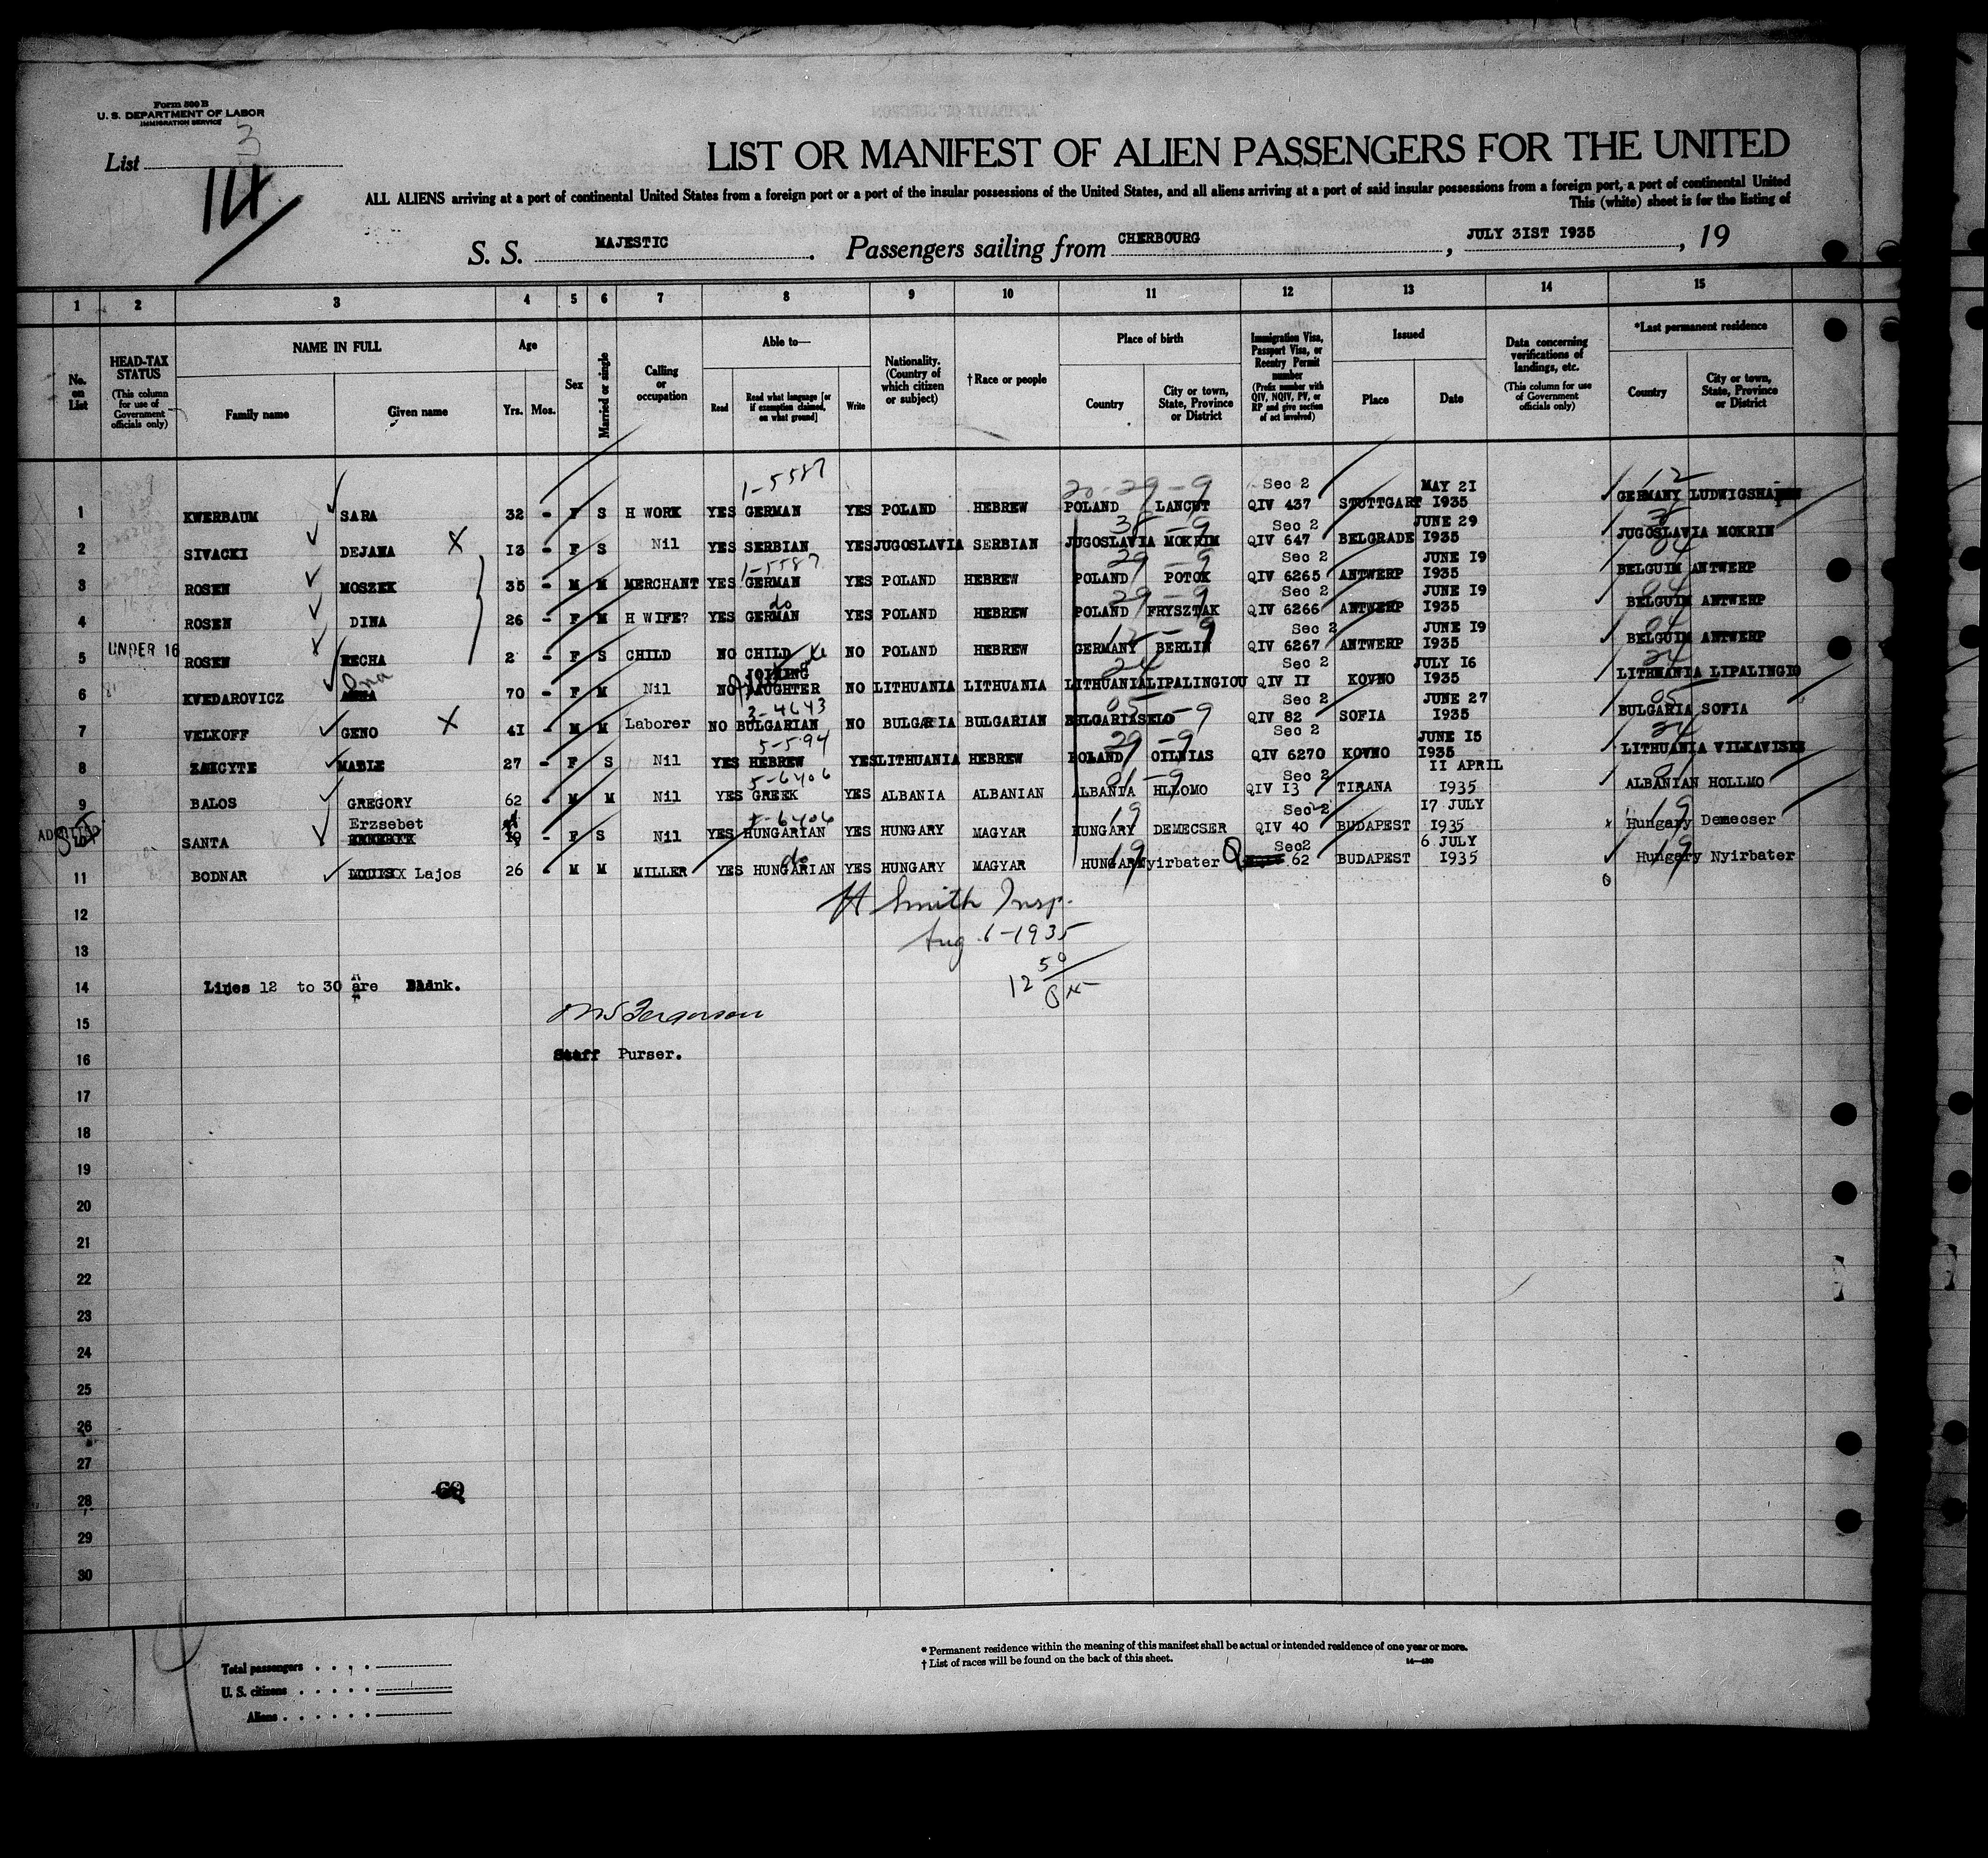 Form 500 B
U. S. DEPARTMENT OF LABOR
IMMIGRATION SERVICE
List 3
14
LIST OR MANIFEST OF ALIEN PASSENGERS FOR THE UNITED
ALL ALIENS arriving at a port of continental United States from a foreign port or a port of the insular possessions of the United States, and all aliens arriving at a port of said insular possessions from a foreign port, a port of continental United
This (white) sheet is for the listing of
S. S. MAJESTIC. Passengers sailing from CHERBOURG, JULY 31ST 1935, 19
1 2 3 4 5 6 7 8 9 10 11 12 13 14 15
No. on List
HEAD-TAX STATUS (This column for use of Government officials only)
NAME IN FULL Family name Given name
Age Yrs. Mos.
Sex
Married or single
Calling or occupation
Able to— Read Read what language [or if exemption claimed, on what ground] Write
Nationality. (Country of which citizen or subject)
†Race or people
Place of birth Country City or town, State, Province or District
Immigration Visa, Passport Visa, or Reentry Permit number (Prefix number with QIV, NQIV, PV, or RP and give section of act involved)
Issued Place Date
Data concerning verifications of landings, etc. (This column for use of Government officials only)
*Last permanent residence Country City or town, State, Province or District
1-5587 20-29-9 Sec 2 MAY 21 12
1 KWERBAUM SARA 32 - F S H WORK YES GERMAN YES POLAND HEBREW POLAND LANCUT QIV 437 STUTTGART 1935 GERMANY LUDWIGSHAFEN
38-9 Sec 2 JUNE 29
2 SIVACKI DEJANA X 13 - F S Nil YES SERBIAN YES JUGOSLAVIA SERBIAN JUGOSLAVIA MOKRIN QIV 647 BELGRADE 1935 JUGOSLAVIA MOKRIN
1-5587 29-9 Sec 2 JUNE 19 04
3 ROSEN MOSZEK 35 - M M MERCHANT YES GERMAN YES POLAND HEBREW POLAND POTOK QIV 6265 ANTWERP 1935 BELGUIM ANTWERP
do 29-9 Sec 2 JUNE 19 04
4 ROSEN DINA 26 - F M H WIFE? YES GERMAN YES POLAND HEBREW POLAND FRYSZTAK QIV 6266 ANTWERP 1935 BELGUIM ANTWERP
12-9 Sec 2 JUNE 19 04
5 UNDER 16 ROSEN RECHA 2 - F S CHILD NO CHILD NO POLAND HEBREW GERMANY BERLIN QIV 6267 ANTWERP 1935 BELGUIM ANTWERP
Ona JOINING 24 Sec 2 JULY 16 24
6 KVEDAROVICZ 70 - F M Nil NO DAUGHTER NO LITHUANIA LITHUANIA LITHUANIA LIPALINGIOU QIV 11 KOVNO 1935 LITHUANIA LIPALINGIO
3-4643 05-9 Sec 2 JUNE 27 05
7 VELKOFF GENO X 41 - M M Laborer NO BULGARIAN NO BULGARIA BULGARIAN BULGARIA SELO QIV 82 SOFIA 1935 BULGARIA SOFIA
5-5594 29-9 Sec 2 JUNE 15 24
8 27 - F S Nil YES HEBREW YES LITHUANIA HEBREW POLAND QIV 6270 KOVNO 1935 LITHUANIA
5-6406 01-9 Sec 2 11 APRIL 01
9 BALOS GREGORY 62 - M M Nil YES GREEK YES ALBANIA ALBANIAN ALBANIA HLLOMO QIV 13 TIRANA 1935 ALBANIAN HOLLMO
ADMITTED Erzsebet 5-6406 19 Sec 2 17 JULY 19
10 SANTA 19 - F S Nil YES HUNGARIAN YES HUNGARY MAGYAR HUNGARY DEMECSER QIV 40 BUDAPEST 1935 Hungary Demecser
do 19 Sec2 6 JULY 19
11 BODNAR Lajos 26 - M M MILLER YES HUNGARIAN YES HUNGARY MAGYAR HUNGARY Nyirbater Q 62 BUDAPEST 1935 Hungary Nyirbater
12
H Smith Insp.
13
Aug. 6-1935
14 Lines 12 to 30 are Blank.
12 50 PM
15
Ferguson
16 Staff Purser.
17
18
19
20
21
22
23
24
25
26
27
28
29
30
69
14
Total passengers
U. S. citizens
Aliens
* Permanent residence within the meaning of this manifest shall be actual or intended residence of one year or more.
† List of races will be found on the back of this sheet.
14—430